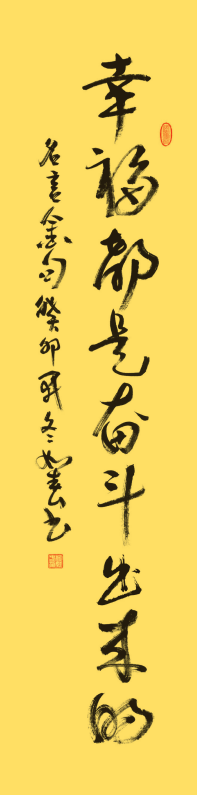 幸福都是奋斗出来的
名言金句癸卯年冬如春书